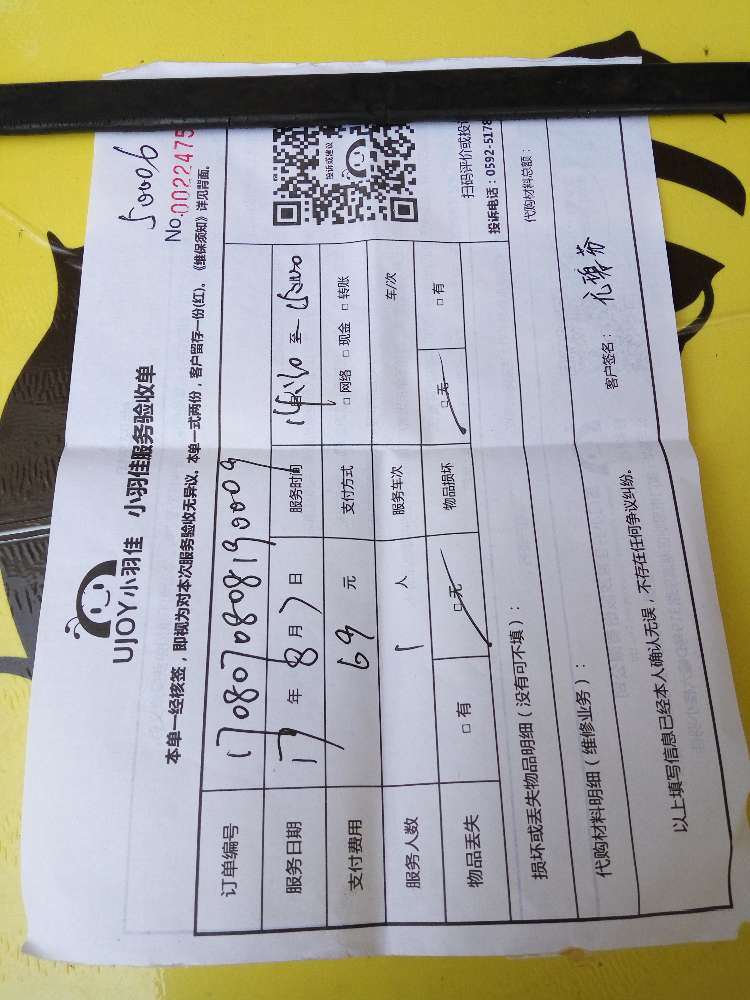 50006
UJOY小羽佳 小羽佳服务验收单
No.0022475
本单一经核签，即视为对本次服务验收无异议。本单一式两份，客户留存一份(红)。《维保须知》详见背面。
订单编号 1708070808190009
服务日期 17 年 8 月 7 日 服务时间 至
投诉或建议
支付费用 69 元 支付方式 □ 网络 □ 现金 □ 转账
服务人数 1 人 服务车次 车/次
物品丢失 □ 有 □ 无 物品损坏 □ 无 □ 有
扫码评价或投诉
投诉电话：0592-5178
损坏或丢失物品明细（没有可不填）：
代购材料明细（维修业务）： 代购材料总额：
以上填写信息已经本人确认无误，不存在任何争议纠纷。 客户签名：